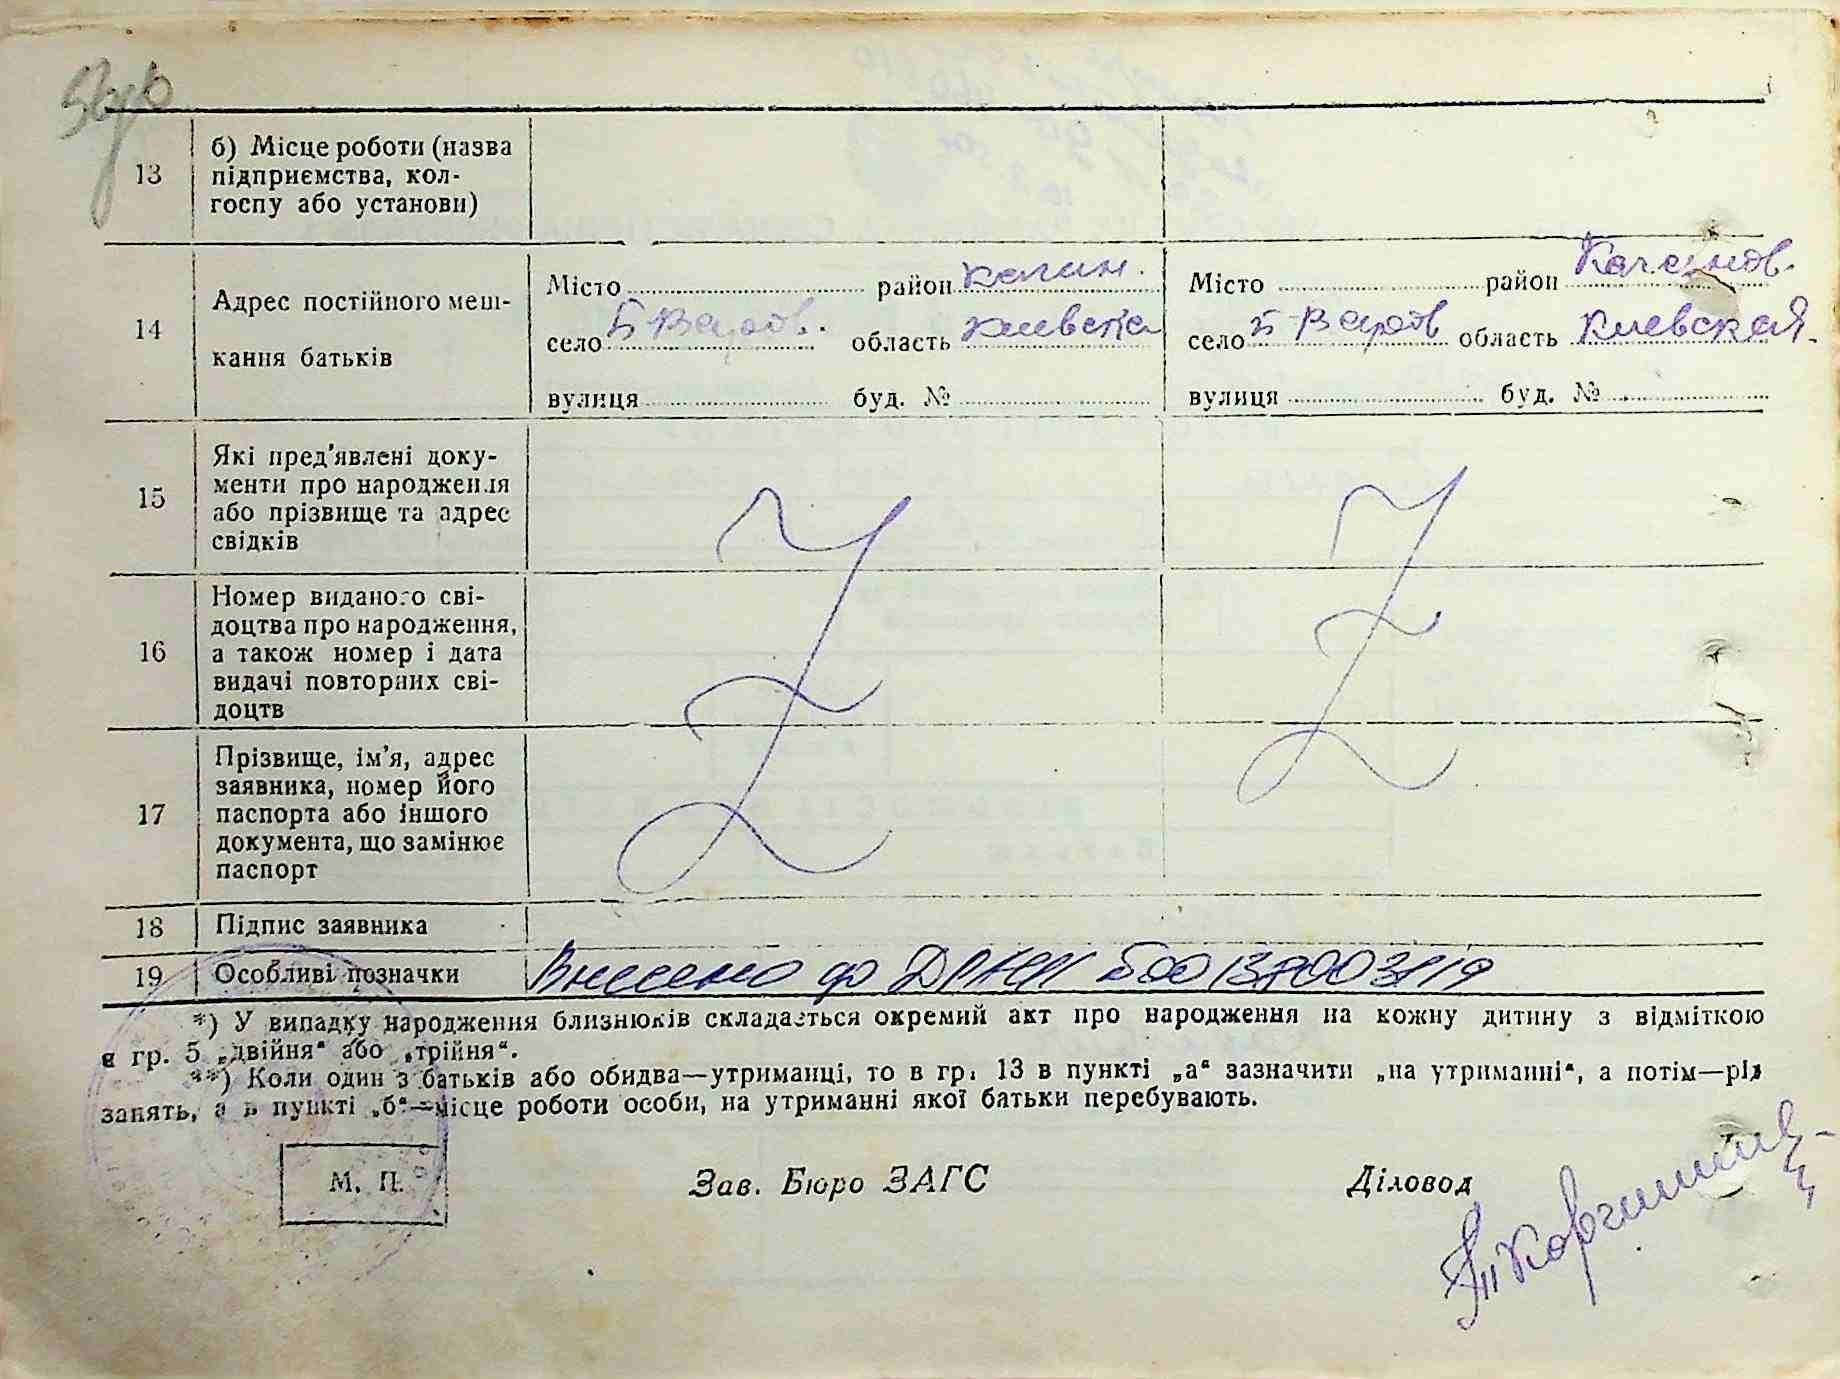 13 б) Місце роботи (назва
підприємства, кол-
госпу або установи)
14 Адрес постійного меш-
кання батьків
Місто район Калин.
село Б-Веупов. область Киевска
вулиця буд. №
Місто район Калинов.
село Б-Веупов область Киевская.
вулиця буд. №
15 Які пред'явлені доку-
менти про народження
або прізвище та адрес
свідків
16 Номер виданого сві-
доцтва про народження,
а також номер і дата
видачі повторних сві-
доцтв
17 Прізвище, ім'я, адрес
заявника, номер його
паспорта або іншого
документа, що замінює
паспорт
18 Підпис заявника
19 Особливі позначки Внесено до ДРАЦС
*) У випадку народження близнюків складається окремий акт про народження на кожну дитину з відміткою
в гр. 5 „двійня" або „трійня".
**) Коли один з батьків або обидва—утриманці, то в гр. 13 в пункті „а" зазначити „на утриманні", а потім—рід
занять, а в пункті „б"—місце роботи особи, на утриманні якої батьки перебувають.
М. П. Зав. Бюро ЗАГС Діловод